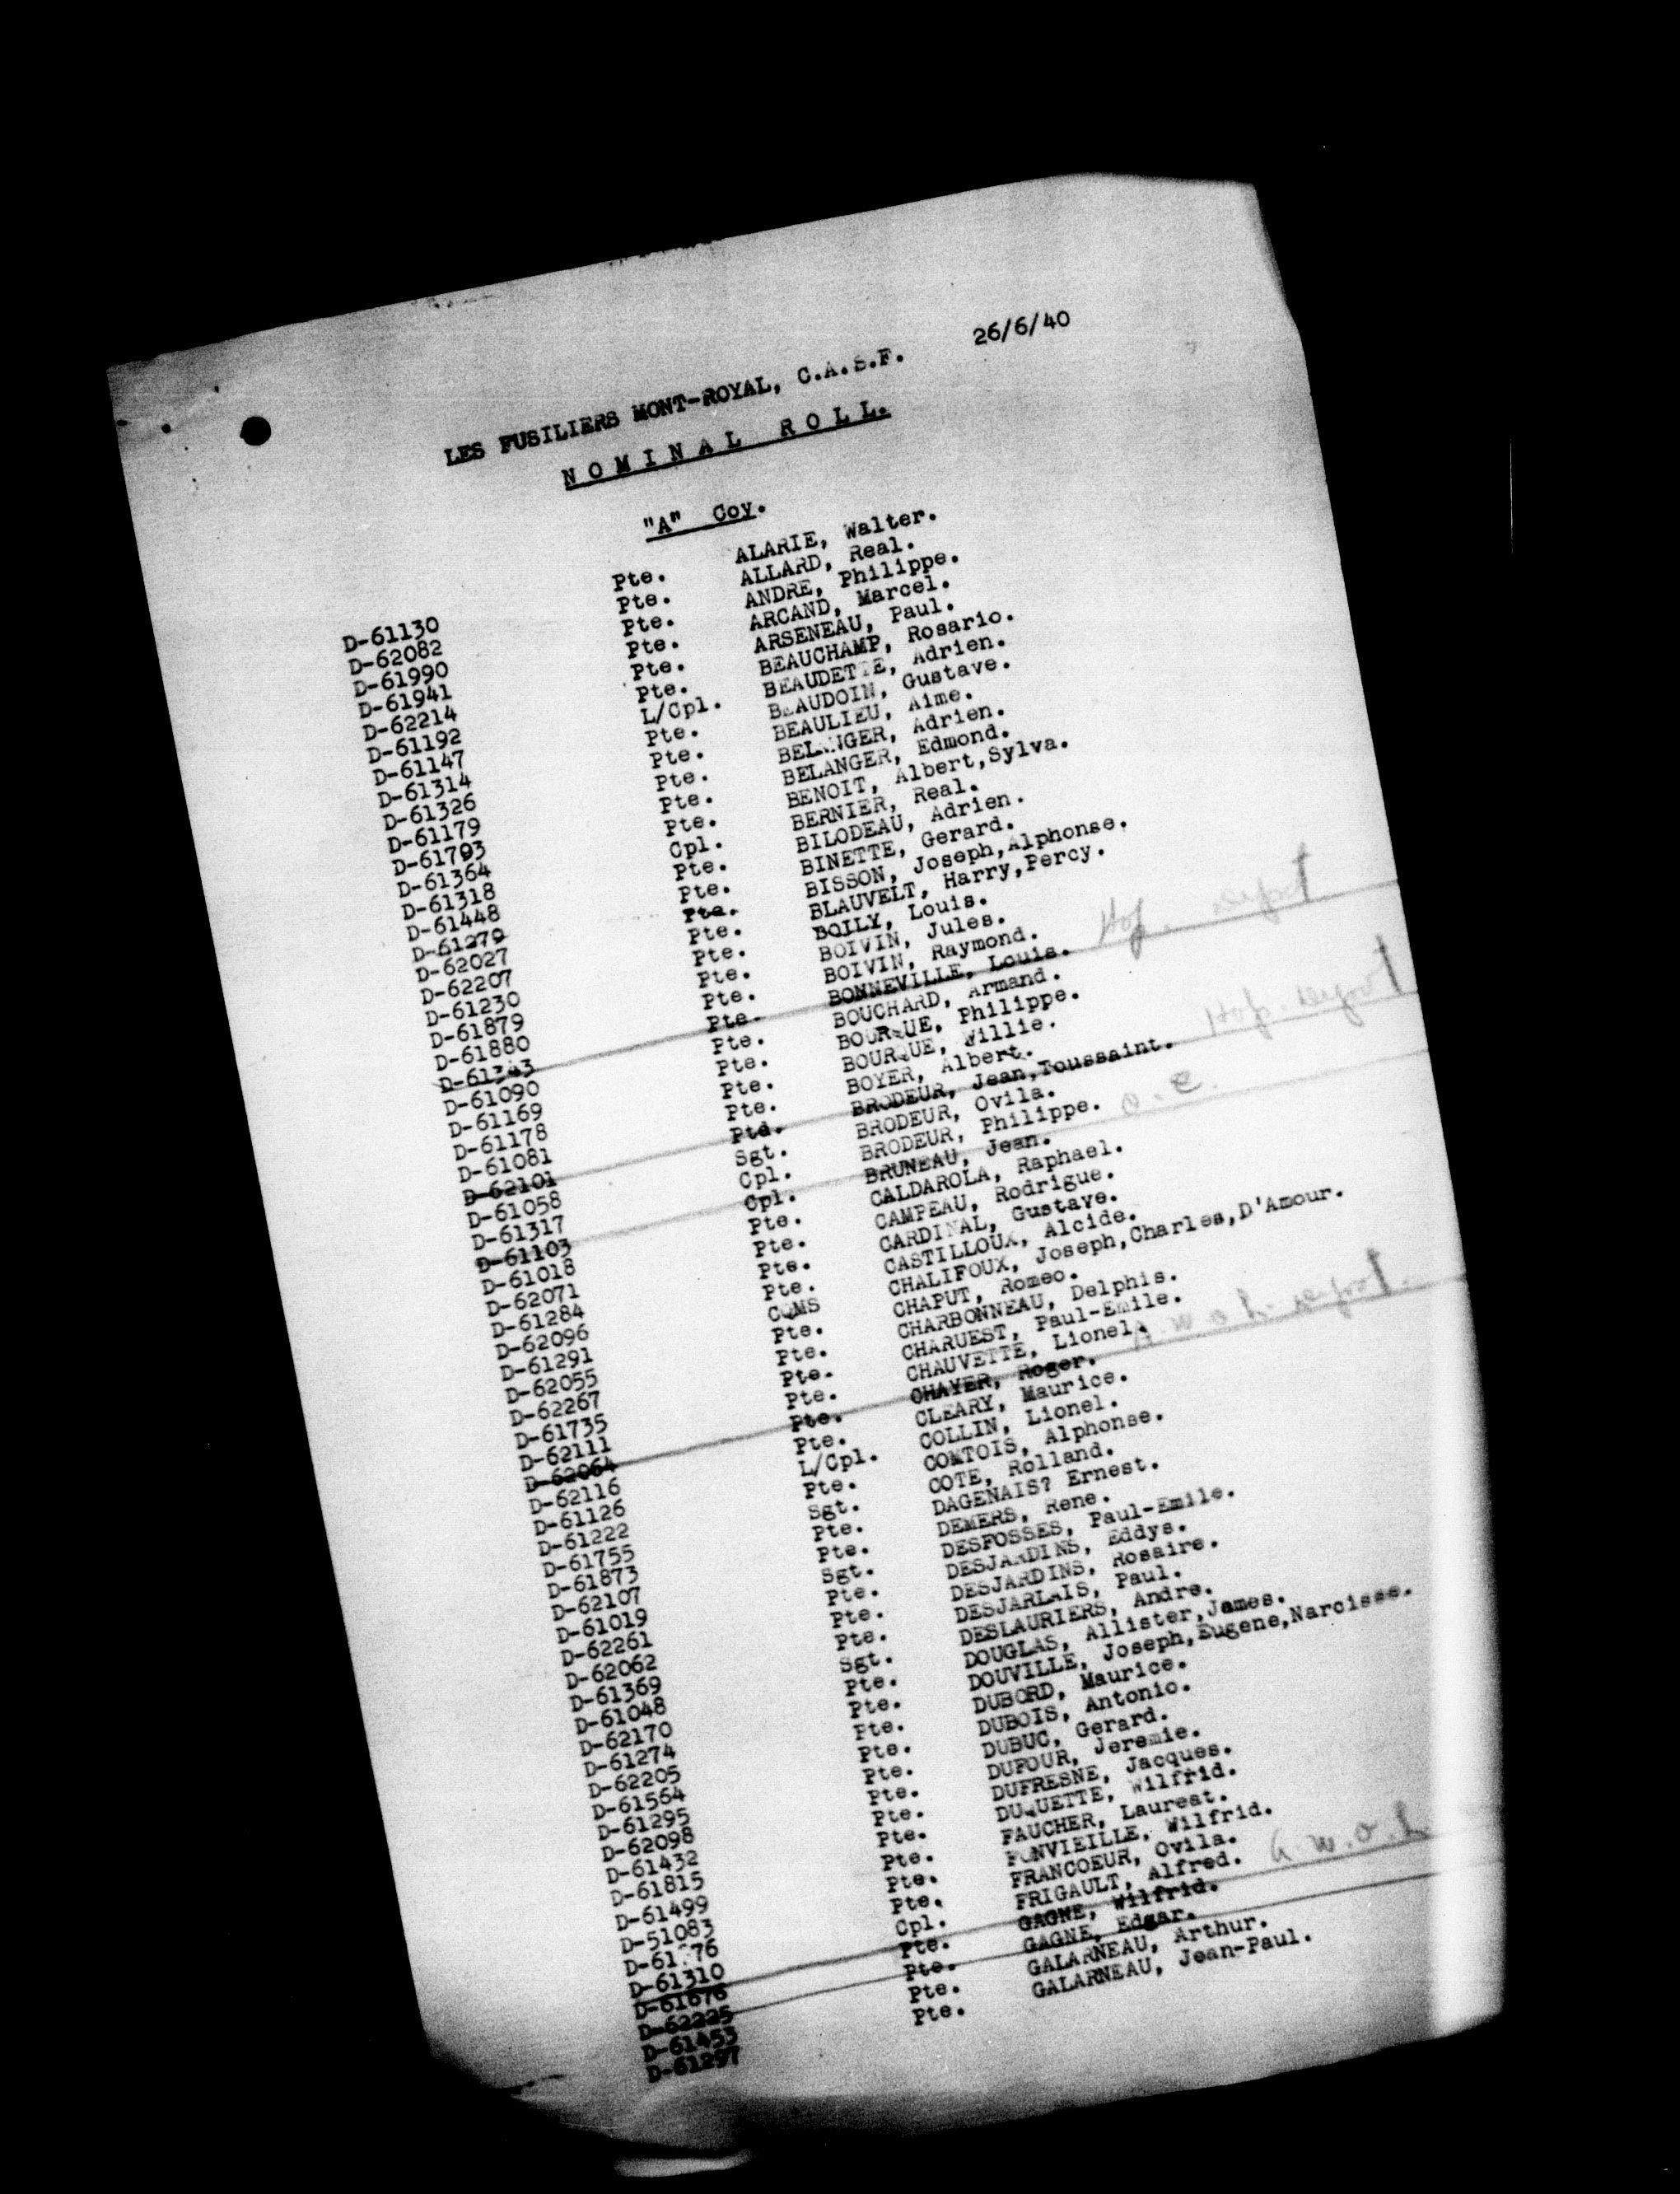 26/6/40
LES FUSILIERS MONT-ROYAL, C.A.S.F.
N O M I N A L R O L L.
"A" Coy.
D-61130 Pte. ALARIE, Walter.
D-62082 Pte. ALLARD, Real.
D-61990 Pte. ANDRE, Philippe.
D-61941 Pte. ARCAND, Marcel.
D-62214 Pte. ARSENEAU, Paul.
D-61192 Pte. BEAUCHAMP, Rosario.
D-61147 L/Cpl. BEAUDETTE, Adrien.
D-61314 Pte. BEAUDOIN, Gustave.
D-61326 Pte. BEAULIEU, Aime.
D-61179 Pte. BELANGER, Adrien.
D-61793 Pte. BELANGER, Edmond.
D-61364 Pte. BENOIT, Albert,Sylva.
D-61318 Cpl. BERNIER, Real.
D-61448 Pte. BILODEAU, Adrien.
D-61279 Pte. BINETTE, Gerard.
D-62027 Pte. BISSON, Joseph,Alphonse.
D-62207 Pte. BLAUVELT, Harry,Percy.
D-61230 Pte. BOILY, Louis.
D-61879 Pte. BOIVIN, Jules.
D-61880 Pte. BOIVIN, Raymond.
D-61343 Pte. BONNEVILLE, Louis. Hof. Depot
D-61090 Pte. BOUCHARD, Armand.
D-61169 Pte. BOURQUE, Philippe.
D-61178 Pte. BOURQUE, Willie.
D-61081 Pte. BOYER, Albert.
D-62101 Pte. BRODEUR, Jean,Toussaint. Hof. Depot
D-61058 Sgt. BRODEUR, Ovila.
D-61317 Cpl. BRODEUR, Philippe.
D-61103 Cpl. BRUNEAU, Jean. O. C.
D-61018 Pte. CALDAROLA, Raphael.
D-62071 Pte. CAMPEAU, Rodrigue.
D-61284 Pte. CARDINAL, Gustave.
D-62096 Pte. CASTILLOUX, Alcide.
D-61291 CQMS CHALIFOUX, Joseph,Charles,D'Amour.
D-62055 Pte. CHAPUT, Romeo.
D-62267 Pte. CHARBONNEAU, Delphis.
D-61735 Pte. CHARUEST, Paul-Emile.
D-62111 Pte. CHAUVETTE, Lionel.
D-62064 Pte. CHAYER, Roger. A. W. O. L. Depot.
D-62116 Pte. CLEARY, Maurice.
D-61126 L/Cpl. COLLIN, Lionel.
D-61222 Pte. COMTOIS, Alphonse.
D-61755 Sgt. COTE, Rolland.
D-61873 Pte. DAGENAIS? Ernest.
D-62107 Pte. DEMERS, Rene.
D-61019 Sgt. DESFOSSES, Paul-Emile.
D-62261 Pte. DESJARDINS, Eddys.
D-62062 Pte. DESJARDINS, Rosaire.
D-61369 Pte. DESJARLAIS, Paul.
D-61048 Sgt. DESLAURIERS, Andre.
D-62170 Pte. DOUGLAS, Allister,James.
D-61274 Pte. DOUVILLE, Joseph,Eugene,Narcisse.
D-62205 Pte. DUBORD, Maurice.
D-61564 Pte. DUBOIS, Antonio.
D-61295 Pte. DUBUC, Gerard.
D-62098 Pte. DUFOUR, Jeremie.
D-61432 Pte. DUFRESNE, Jacques.
D-61815 Pte. DUQUETTE, Wilfrid.
D-61499 Pte. FAUCHER, Laureat.
D-51083 Pte. FONVIEILLE, Wilfrid.
Pte. FRANCOEUR, Ovila.
D-61310 Cpl. FRIGAULT, Alfred.
D-61676 Pte. GAGNE, Wilfrid. A. W. O. L.
D-62225 Pte. GAGNE, Edgar.
D-61453 Pte. GALARNEAU, Arthur.
D-61297 Pte. GALARNEAU, Jean-Paul.